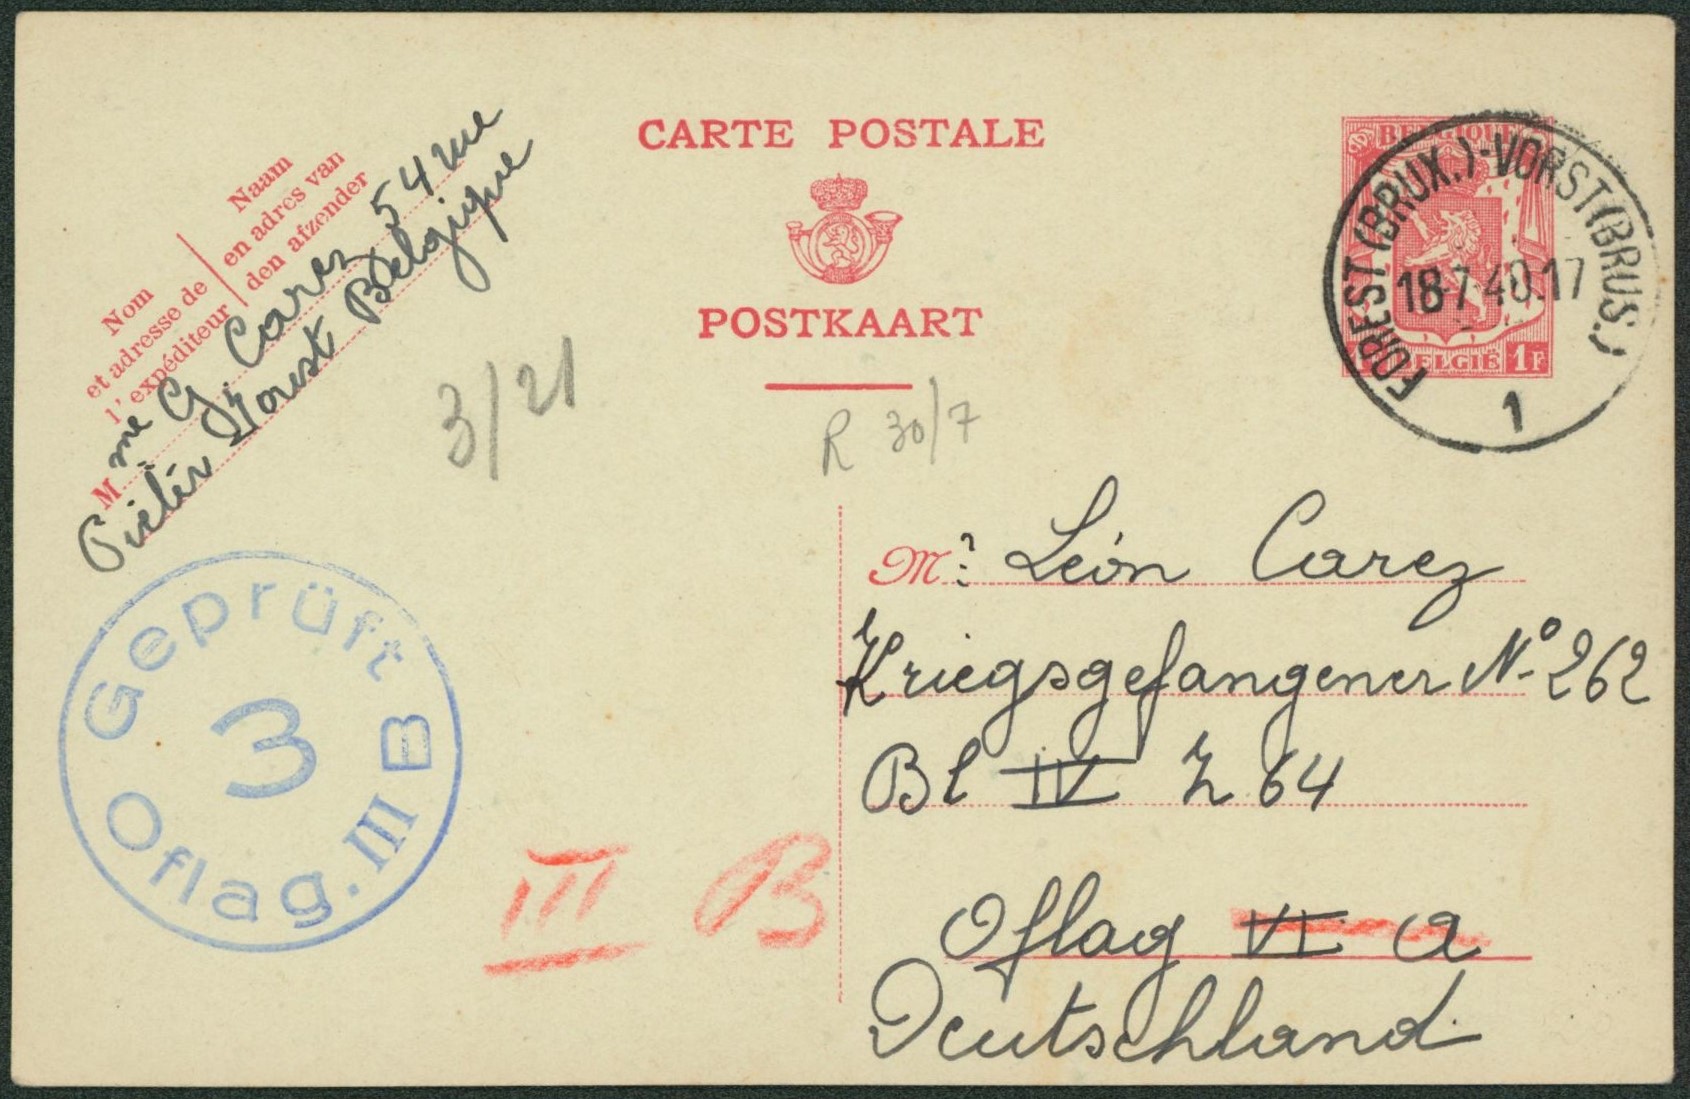 CARTE POSTALE
POSTKAART
BELGIQUE
BELGIË 1F
FOREST (BRUX.)-VORST (BRUS.)
18-7-40.17
1
Naam
en adres van
den afzender
Nom
et adresse de
l'expéditeur
M.me G Carez 54 rue
Belgique
3/21
R 30/7
Mr: Léon Carez
Kriegsgefangener No 262
Bl IV Z 64
Oflag VI A
Deutschland
III B
Geprüft
3
Oflag. III B